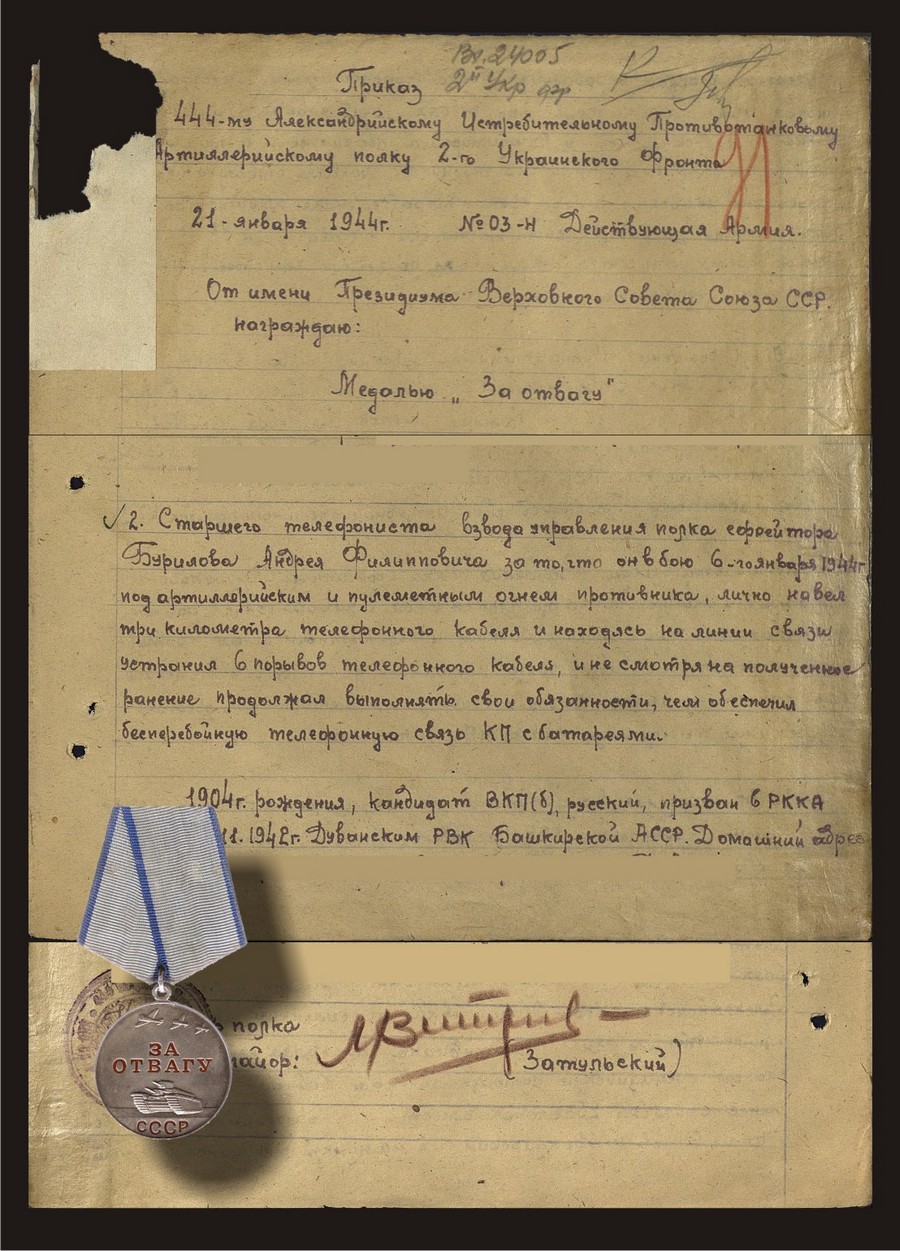 Вх. 24005
2й Укр
Приказ
444-му Александрийскому Истребительному Противотанковому
Артиллерийскому полку 2-го Украинского Фронта
21-января 1944г. №03-Н Действующая Армия.
От имени Президиума Верховного Совета Союза ССР.
награждаю:
Медалью „За отвагу"
2. Старшего телефониста взвода управления полка ефрейтора
Бурилова Андрея Филипповича за то, что он в бою 6-го января 1944г
под артиллерийским и пулеметным огнем противника, лично навел
три километра телефонного кабеля и находясь на линии связи
устранил 6 порывов телефонного кабеля, и не смотря на полученное
ранение продолжал выполнять свои обязанности, чем обеспечил
бесперебойную телефонную связь КП с батареями.
1904г. рождения, кандидат ВКП(б), русский, призван в РККА
11.1942г. Дуванским РВК Башкирской АССР. Домашний адрес
полка
майор:
(Затульский)
ЗА
ОТВАГУ
СССР